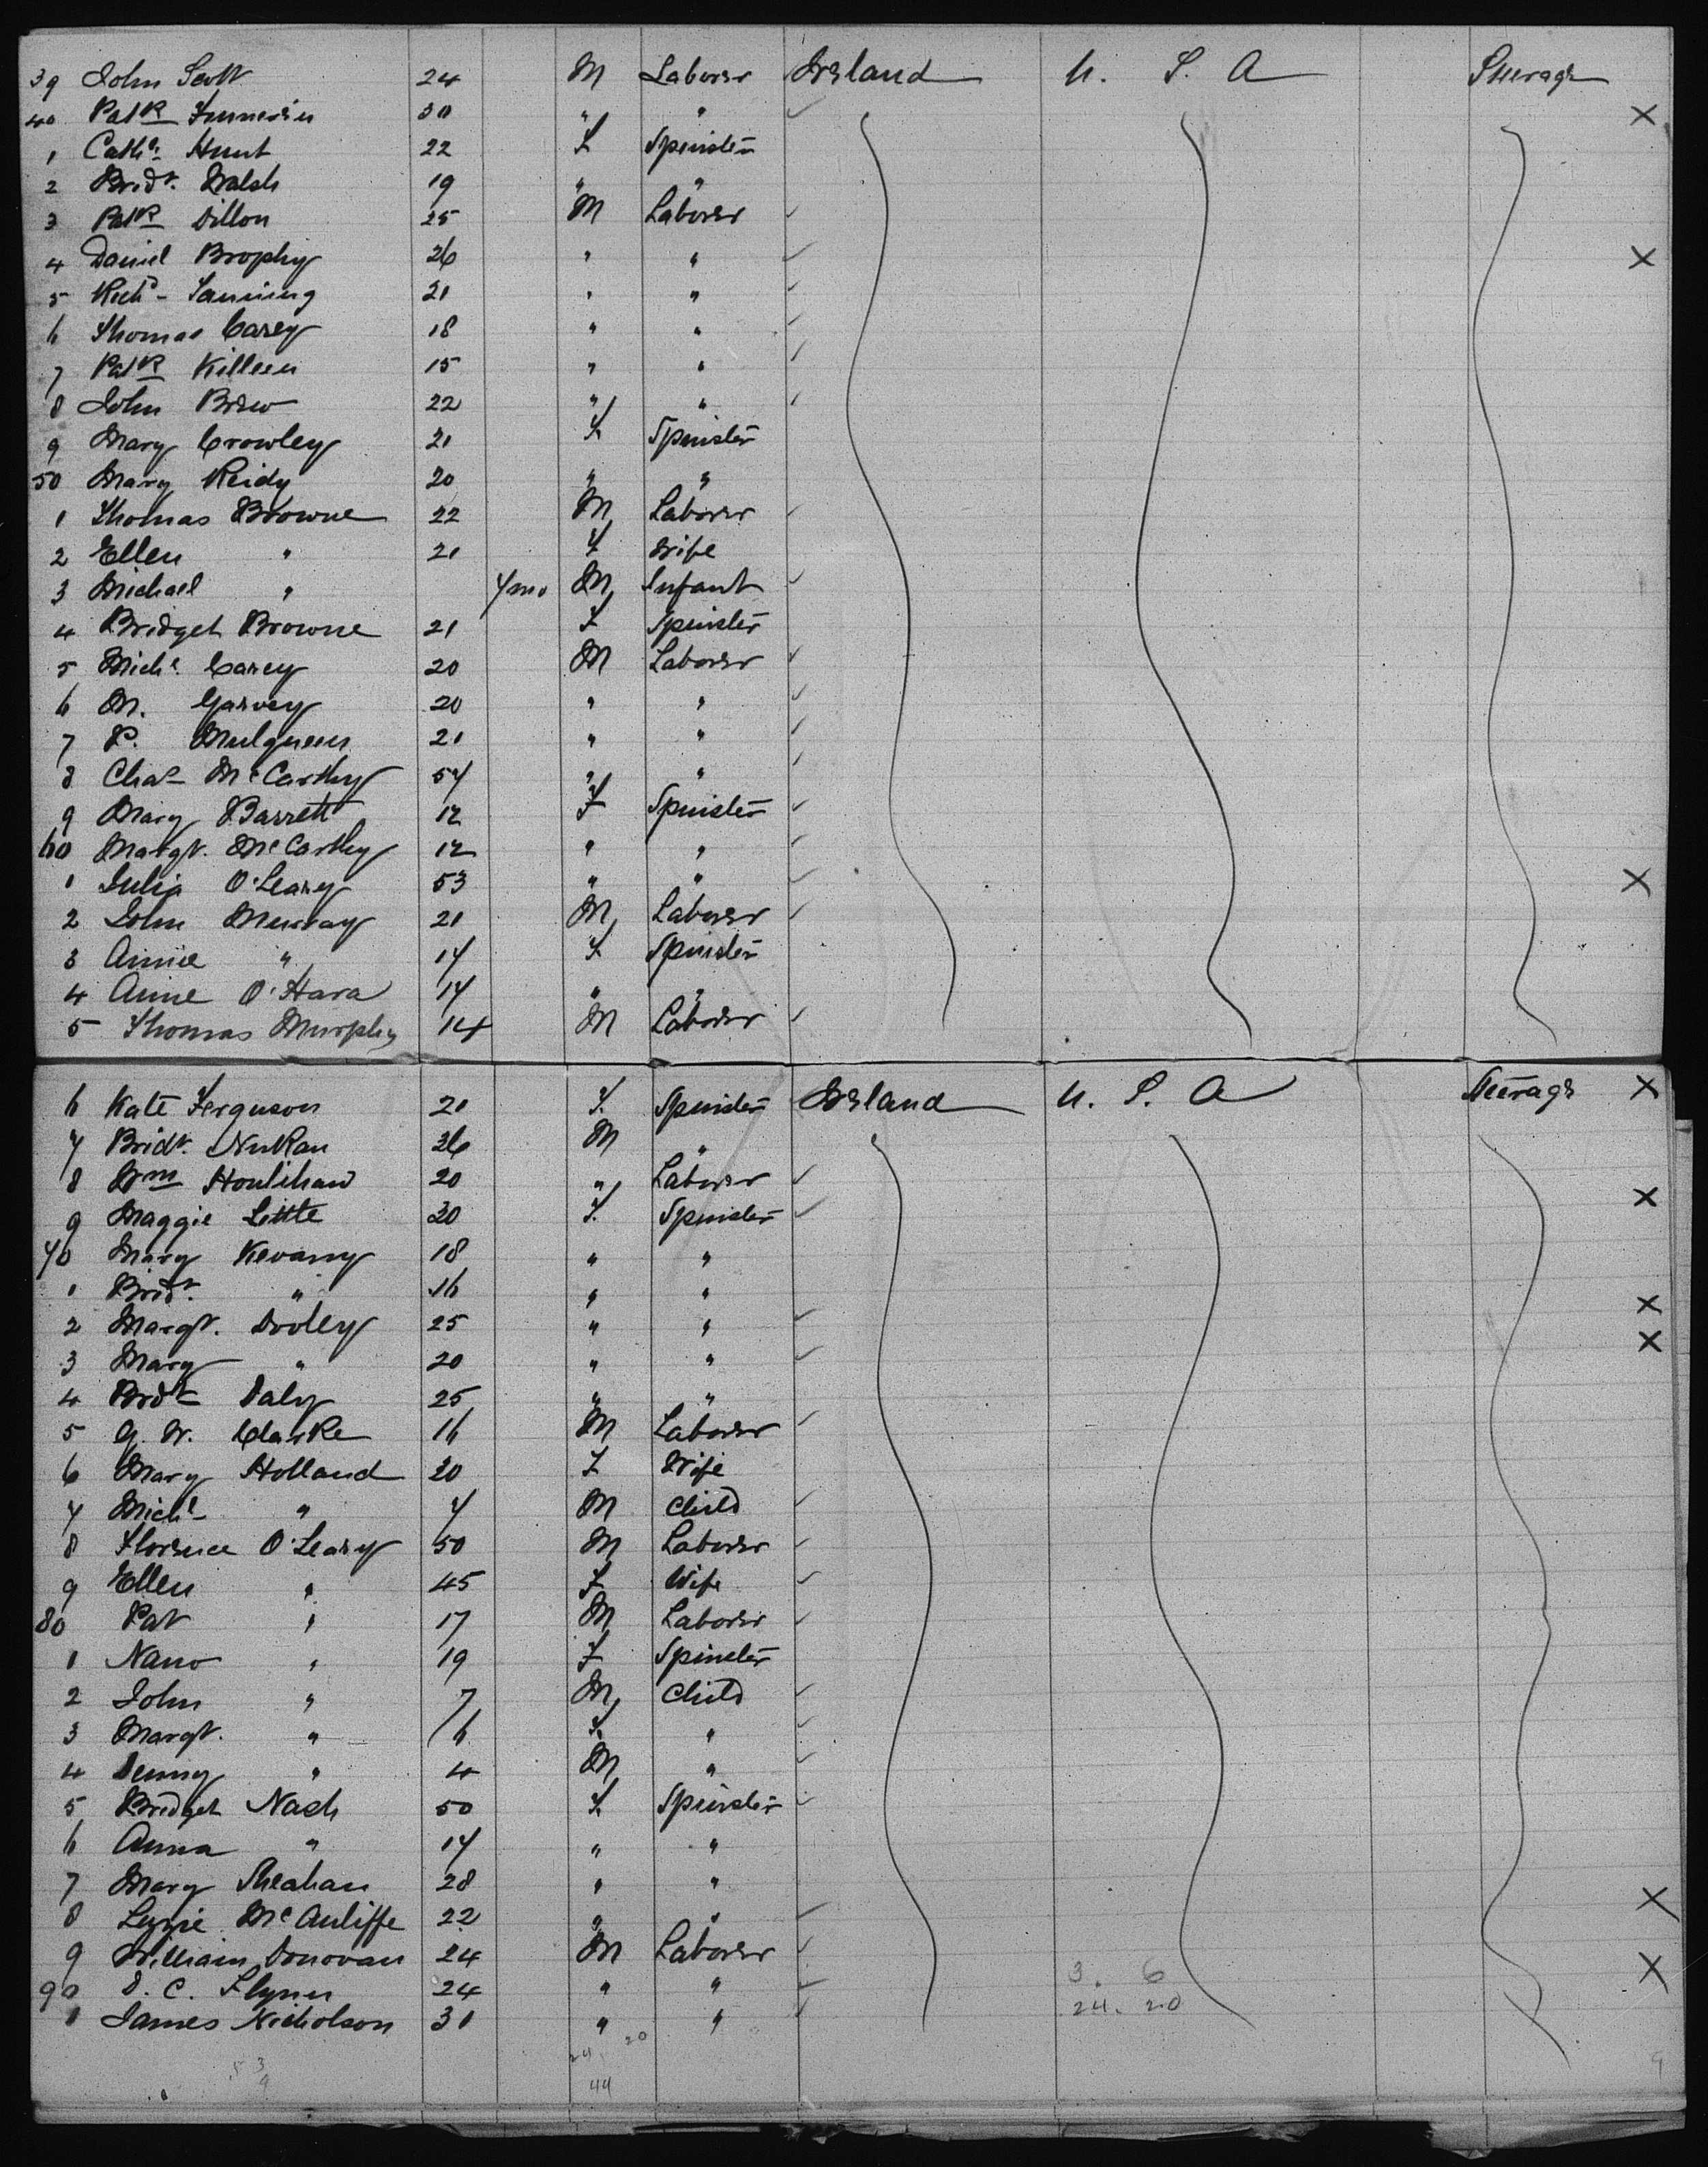 39 John Scott 24 M Laborer Ireland U. S. A Steerage
40 Patk Finneran 30 " "
1 Cathe Hunt 22 F Spinster
2 Bridt. Walsh 19 " "
3 Patk Dillon 25 M Laborer
4 Daniel Brophy 26 " "
5 Richd Fanning 21 " "
6 Thomas Carey 18 " "
7 Patk Killeen 15 " "
8 John Brew 22 " "
9 Mary Crowley 21 F Spinster
50 Mary Reidy 20 " "
1 Thomas Browne 22 M Laborer
2 Ellen " 21 F Wife
3 Michael " M Infant
4 Bridget Browne 21 F Spinster
5 Michl. Carey 20 M Laborer
6 M. Garvey 20 " "
7 P. Mulqueen 21 " "
8 Chas McCarthy 57 " "
9 Mary Barrett 12 F Spinster
60 Margt. McCarthy 12 " "
1 Julia O'Leary 53 " "
2 John Murray 21 M Laborer
3 Annie " 17 F Spinster
4 Anne O'Hara 17 " "
5 Thomas Murphy 14 M Laborer
6 Kate Ferguson 21 F. Spinster Ireland U. S. A Steerage
7 Bridt. 26 M "
8 Wm Houlihan 20 " Laborer
9 Maggie Little 20 F. Spinster
70 Mary Kevany 18 " "
1 Bridt. " 16 " "
2 Margt. Dooley 25 " "
3 Mary " 20 " "
4 Bridt Daly 25 " "
5 G. W. Clarke 16 M Laborer
6 Mary Holland 20 F Wife
7 Michl " M Child
8 Florence O'Leary 50 M Laborer
9 Ellen " 45 F Wife
80 Pat " 17 M Laborer
1 Nano " 19 F Spinster
2 John " 7 M Child
3 Margt. " 6 F. "
4 Denny " 4 M "
5 Bridget Nash 50 F. Spinster
6 Anna " 17 " "
7 Mary Sheahan 28 " "
8 Lizzie McAuliffe 22 " "
9 William Donovan 24 M Laborer
90 D. C. Flynn 24 " " 3. 6
1 James Nicholson 31 " " 24. 20
24. 20
44